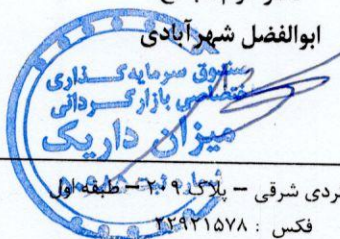 ابوالفضل شهرآبادی
صندوق سرمایه‌گذاری
اختصاصی بازارگردانی
میزان داریک
شماره ثبت
ردی شرقی – پلاک ۲۰۹ – طبقه اول
فکس : ۲۲۹۲۱۵۷۸